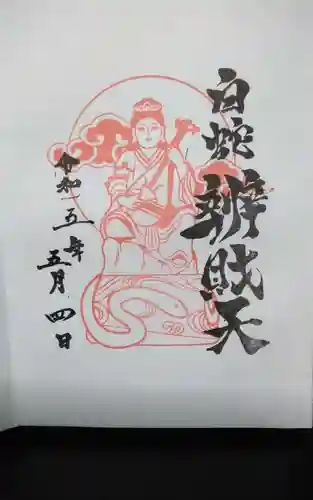 白蛇辨財天
令和五年
五月四日